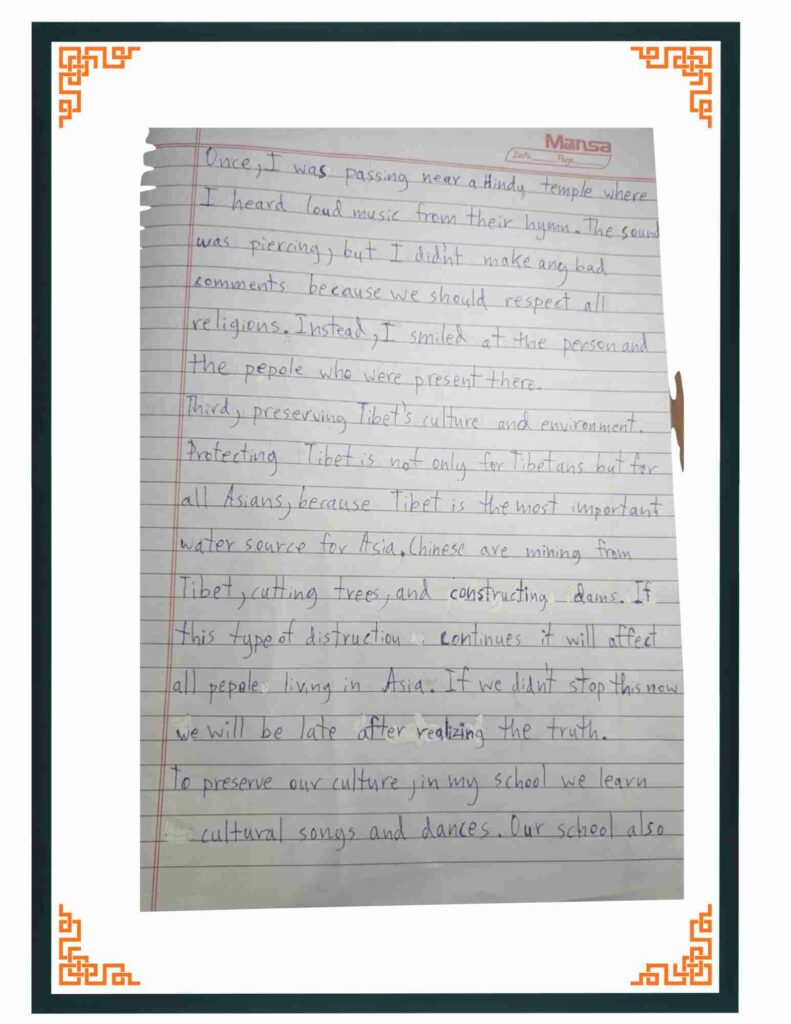 Mansa
Date Page
Once, I was passing near a Hindy temple where
I heard loud music from their hymn. The sound
was piercing, but I didn't make any bad
comments because we should respect all
religions. Instead, I smiled at the person and
the pepole who were present there.
Third, preserving Tibet's culture and environment.
Protecting Tibet is not only for Tibetans but for
all Asians, because Tibet is the most important
water source for Asia. Chinese are mining from
Tibet, cutting trees, and constructing dams. If
this type of distruction continues it will affect
all pepole living in Asia. If we didn't stop this now
we will be late after realizing the truth.
To preserve our culture, in my school we learn
cultural songs and dances. Our school also